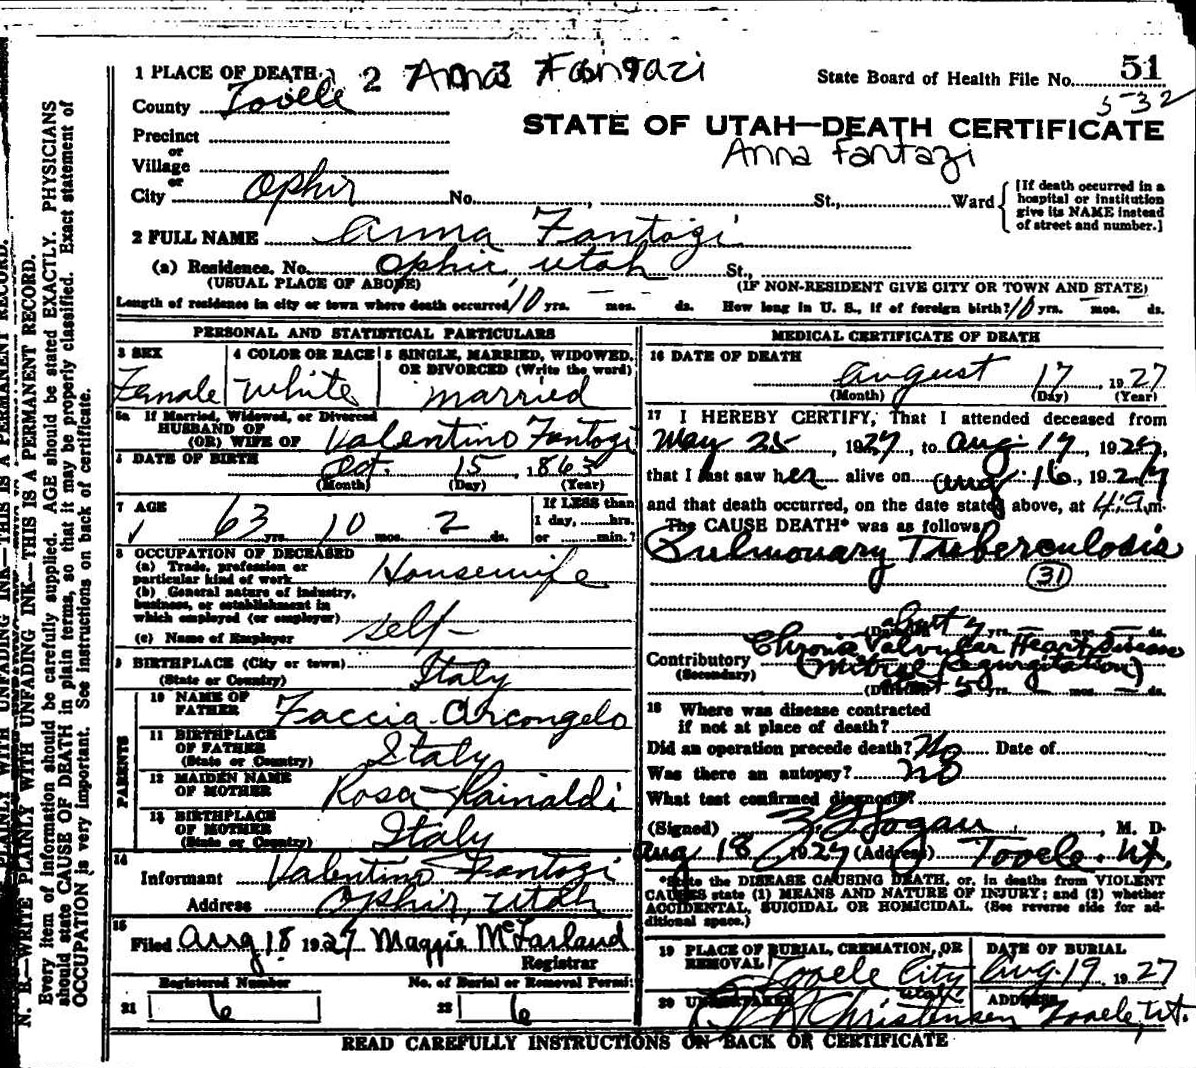 1 PLACE OF DEATH 2 Anna Fantazi State Board of Health File No. 51
County Tooele 5-32
STATE OF UTAH—DEATH CERTIFICATE
Precinct
or
Anna Fantazi
Village
or
City Ophir No. , St., Ward
[If death occurred in a
hospital or institution
give its NAME instead
of street and number.]
2 FULL NAME Anna Fantozi
(a) Residence. No. Ophir, Utah St.,
(USUAL PLACE OF ABODE) (IF NON-RESIDENT GIVE CITY OR TOWN AND STATE)
Length of residence in city or town where death occurred 10 yrs. — mos. — ds. How long in U. S., if of foreign birth? 10 yrs. — mos. — ds.
PERSONAL AND STATISTICAL PARTICULARS
3 SEX
Female
4 COLOR OR RACE
White
5 SINGLE, MARRIED, WIDOWED,
OR DIVORCED (Write the word)
married
5a If Married, Widowed, or Divorced
HUSBAND OF
(OR) WIFE OF Valentino Fantozi
6 DATE OF BIRTH Oct. 15, 1863
(Month) (Day) (Year)
7 AGE
63 yrs. 10 mos. 2 ds.
If LESS than
1 day, hrs.
or min.?
8 OCCUPATION OF DECEASED
(a) Trade, profession or
particular kind of work Housewife
(b) General nature of industry,
business, or establishment in
which employed (or employer) self
(c) Name of Employer
9 BIRTHPLACE (City or town)
(State or Country) Italy
PARENTS
10 NAME OF
FATHER Faccia Arcongelo
11 BIRTHPLACE
OF FATHER
(State or Country) Italy
12 MAIDEN NAME
OF MOTHER Rosa Rainaldi
13 BIRTHPLACE
OF MOTHER
(State or Country) Italy
14
Informant Valentino Fantozi
Address Ophir, Utah
15
Filed Aug 18 1927 Maggie McFarland
Registrar
Registered Number No. of Burial or Removal Permit
21 6 22 6
MEDICAL CERTIFICATE OF DEATH
16 DATE OF DEATH
August 17, 1927
(Month) (Day) (Year)
17 I HEREBY CERTIFY, That I attended deceased from
May 25, 1927, to Aug 17 1927,
that I last saw her alive on Aug 16, 1927
and that death occurred, on the date stated above, at 4:9 m.
The CAUSE DEATH* was as follows
Pulmonary Tuberculosis
31
(Duration) yrs. — mos. — ds.
Contributory Chronic Valvular Heart Disease
(Secondary) (Mitral Regurgitation)
(Duration) 5 yrs. — mos. — ds.
18 Where was disease contracted
if not at place of death?
Did an operation precede death? No Date of
Was there an autopsy? no
What test confirmed diagnosis?
(Signed) , M. D.
Aug 18 1927 (Address) Tooele, Ut.
*State the DISEASE CAUSING DEATH, or, in deaths from VIOLENT
CAUSES state (1) MEANS AND NATURE OF INJURY; and (2) whether
ACCIDENTAL, SUICIDAL OR HOMICIDAL. (See reverse side for ad-
ditional space.)
19 PLACE OF BURIAL, CREMATION, OR
REMOVAL Tooele City
Utah
DATE OF BURIAL
Aug. 19 1927
20 UNDERTAKER Christensen
ADDRESS
Tooele, Ut.
READ CAREFULLY INSTRUCTIONS ON BACK OF CERTIFICATE
N. B.—WRITE PLAINLY WITH UNFADING INK—THIS IS A PERMANENT RECORD.
Every item of information should be carefully supplied. AGE should be stated EXACTLY. PHYSICIANS
should state CAUSE OF DEATH in plain terms, so that it may be properly classified. Exact statement of
OCCUPATION is very important. See instructions on back of certificate.